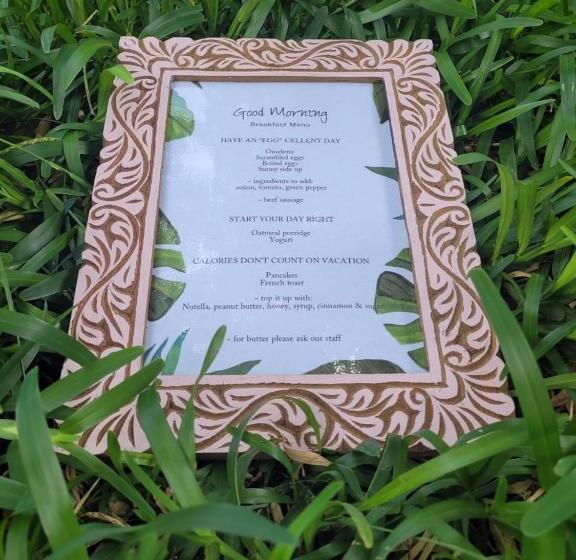 Good Morning
Breakfast Menu
HAVE AN "EGG" CELLENT DAY
Omelette
Scrambled eggs
Boiled eggs
Sunny side up
– ingredients to add:
onion, tomato, green pepper
– beef sausage
START YOUR DAY RIGHT
Oatmeal porridge
Yogurt
CALORIES DON'T COUNT ON VACATION
Pancakes
French toast
– top it up with:
Nutella, peanut butter, honey, syrup, cinnamon & sugar
– for butter please ask our staff